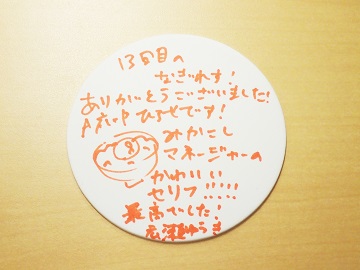 13回目の
なぎれす!
ありがとうございました!
A応P ひろせです!
みかこし
マネージャーの
かわいい
セリフ!!!!!
最高でした!
広瀬ゆうき